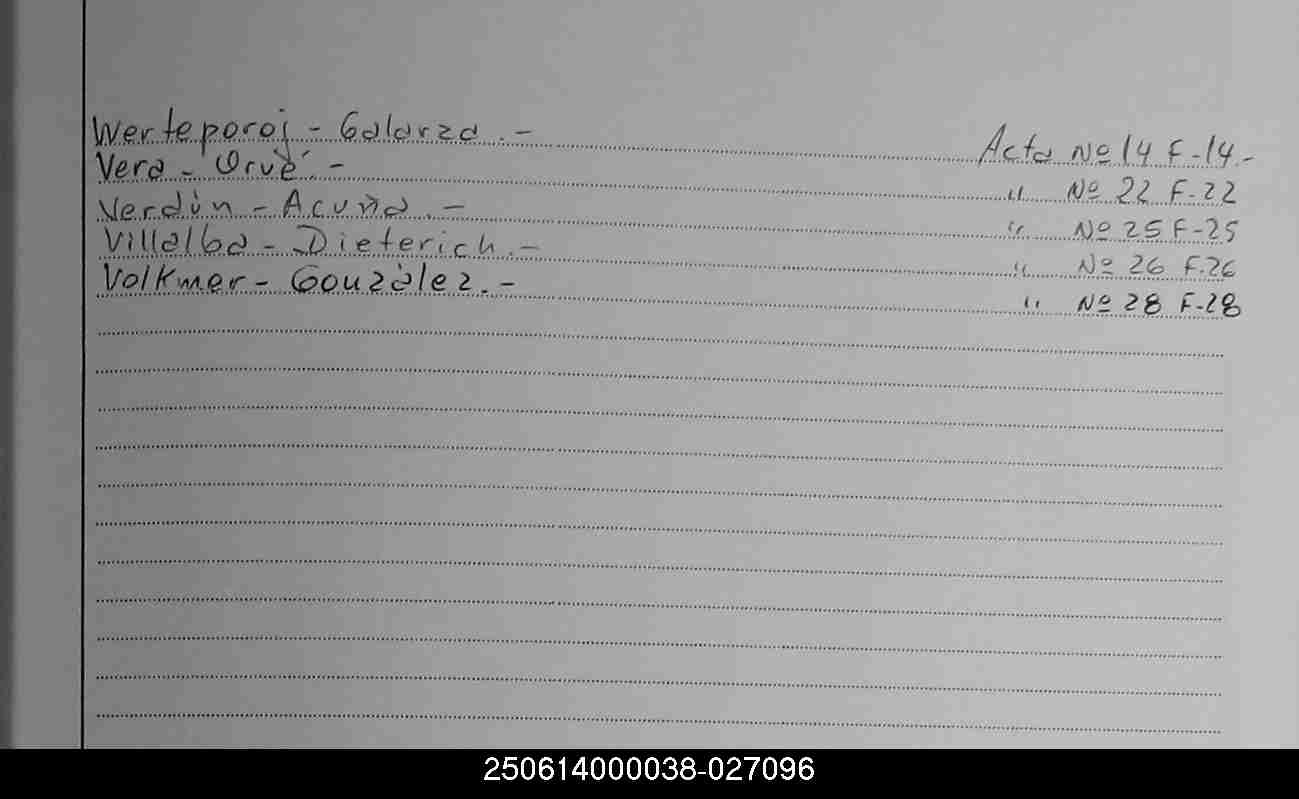 Werteporoj - Galarza.- Acta Nº 14 F-14.-
Vera - Orué.- " Nº 22 F-22
Verdún - Acuña.- " Nº 25 F-25
Villalba - Dieterich.- " Nº 26 F-26
Volkmer - González.- " Nº 28 F-28
250614000038-027096